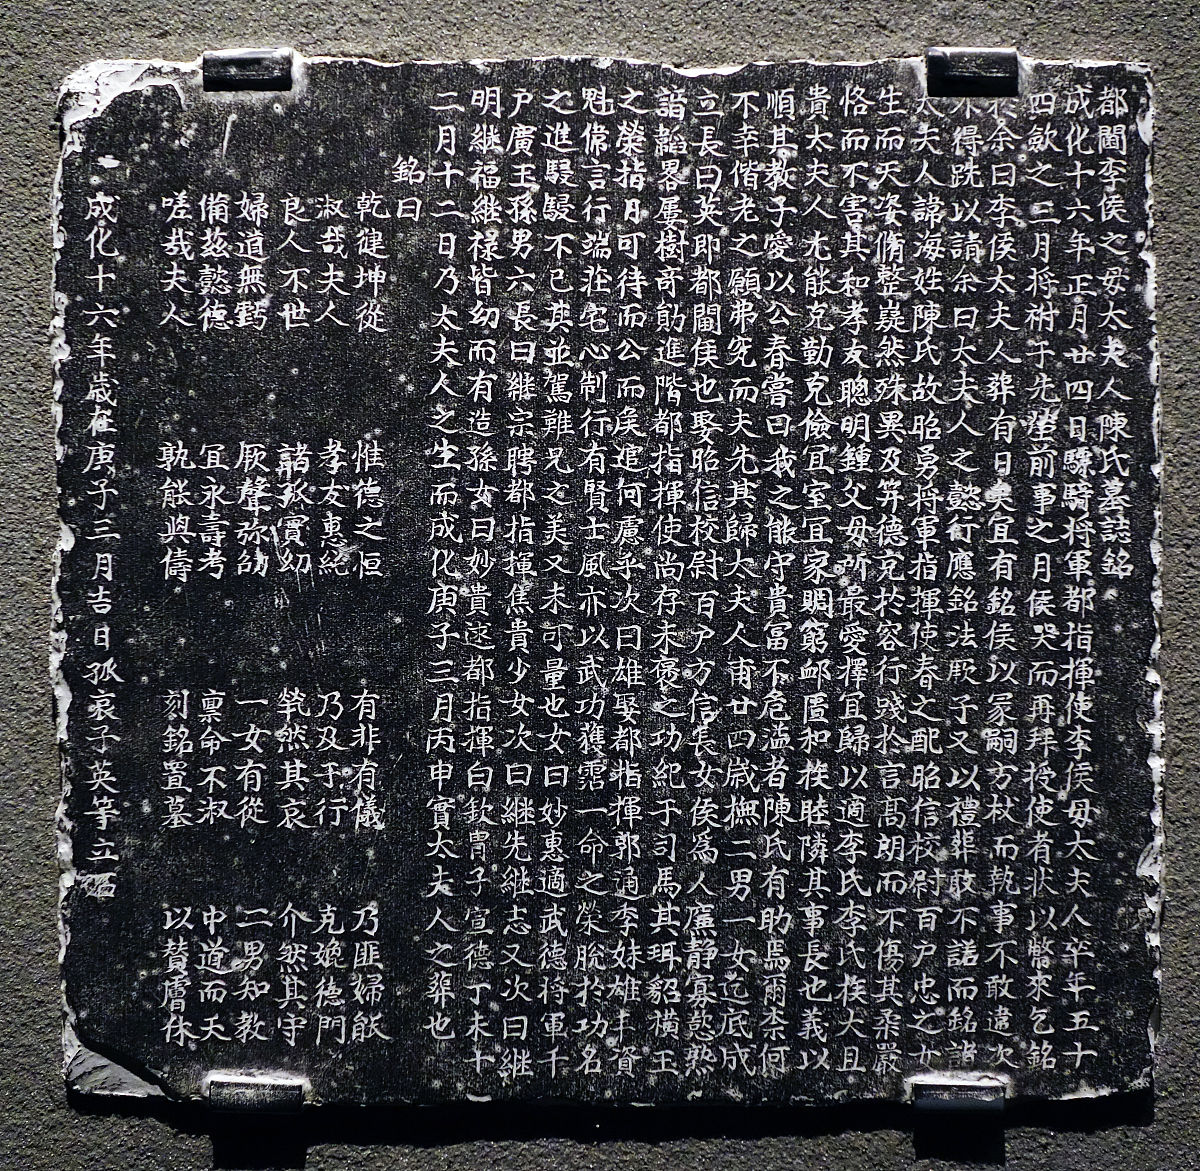 都閫李侯之母太夫人陳氏墓誌銘
成化十六年正月廿四日驃騎将軍都指揮使李侯母太夫人卒年五十
四歛之三月将祔于先塋前事之月侯哭而再拜授使者状以幣來乞銘
余曰李侯太夫人葬有日矣宜有銘侯以冡嗣方杖而執事不敢違次
不得跣以請余曰太夫人之懿行應銘法厥子又以禮葬敢不諾而銘諸
太夫人諱海姓陳氏故昭勇将軍指揮使春之配昭信校尉百戸忠之女
生而天姿脩整嶷然殊異及笄德克於容行踐於言髙朗而不傷其柔嚴
恪而不害其和孝友聰明鍾父母所最愛擇宜歸以適李氏李氏族大且
貴太夫人尤能克勤克儉宜室宜家賙窮卹匱和族睦隣其事長也義以
順其教子愛以公春嘗曰我之能守貴富不危溢者陳氏有助焉爾柰何
不幸偕老之願弗究而夫先其歸太夫人甫廿四歳撫二男一女迄底成
立長曰英即都閫侯也娶昭信校尉百戸方信長女侯為人廬静寡慾熟
諳韜畧屡樹竒勛進階都指揮使尚存未褒之功紀于司馬其珥貂橫玉
之榮指月可待而公而矦追何慮乎次曰雄娶都指揮郭通李妹雄丰資
魁偉言行端莊宅心制行有賢士風亦以武功獲霑一命之榮脫於功名
之進駸駸不已其並駕難兄之美又未可量也女曰妙惠適武德将軍千
戸廣玉孫男六長曰継宗聘都指揮焦貴少女次曰継先継志又次曰継
明継福継禄皆幼而有造孫女曰妙貴逑都指揮白欽冑子宣德丁未十
二月十二日乃太夫人之生而成化庚子三月丙申實太夫人之葬也
銘曰
乾健坤從 惟德之恒 有非有儀 乃匪婦能
淑哉夫人 孝友惠純 乃及于行 克媲德門
良人不世 諸孤實幼 煢然其哀 介然其守
婦道無虧 厥聲弥劭 一女有從 二男知教
俻茲懿德 宜永壽考 禀命不淑 中道而夭
嗟哉夫人 孰能與儔 刻銘置墓 以賛膚休
成化十六年歳在庚子三月吉日孤哀子英等立石